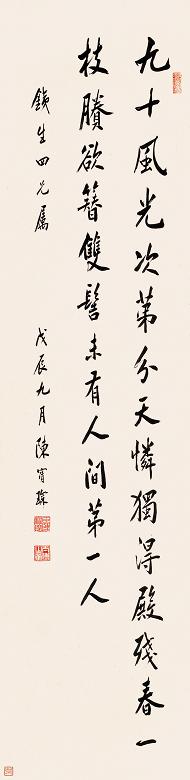 九十風光次第分天憐獨得殿殘春一
枝賸欲簪雙髻未有人間第一人
鐵生四兄屬
戊辰九月陳寶琛